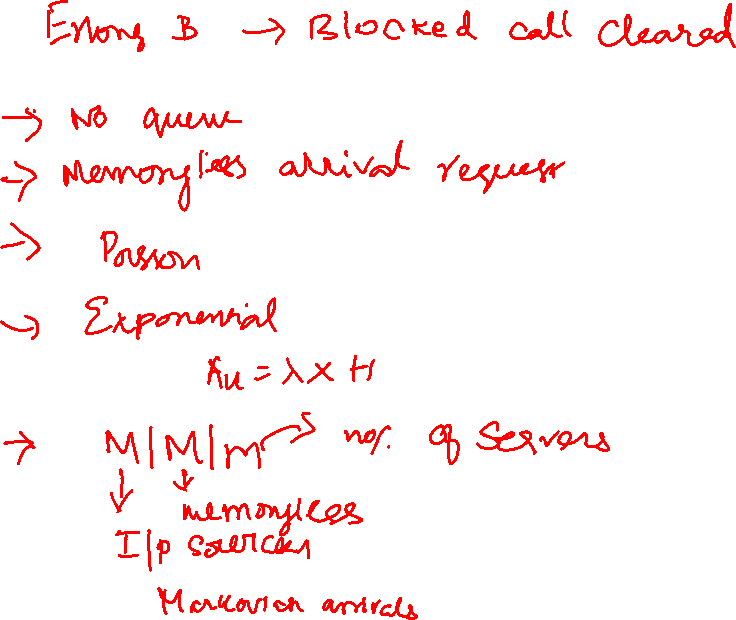 Erlang B → Blocked call cleared
→ No queue
→ Memoryless arrival request
→ Poisson
→ Exponential
Au = λ × H
→ M|M|m → no. of Servers
↓ ↓
memoryless
I/p sources
Markovian arrivals